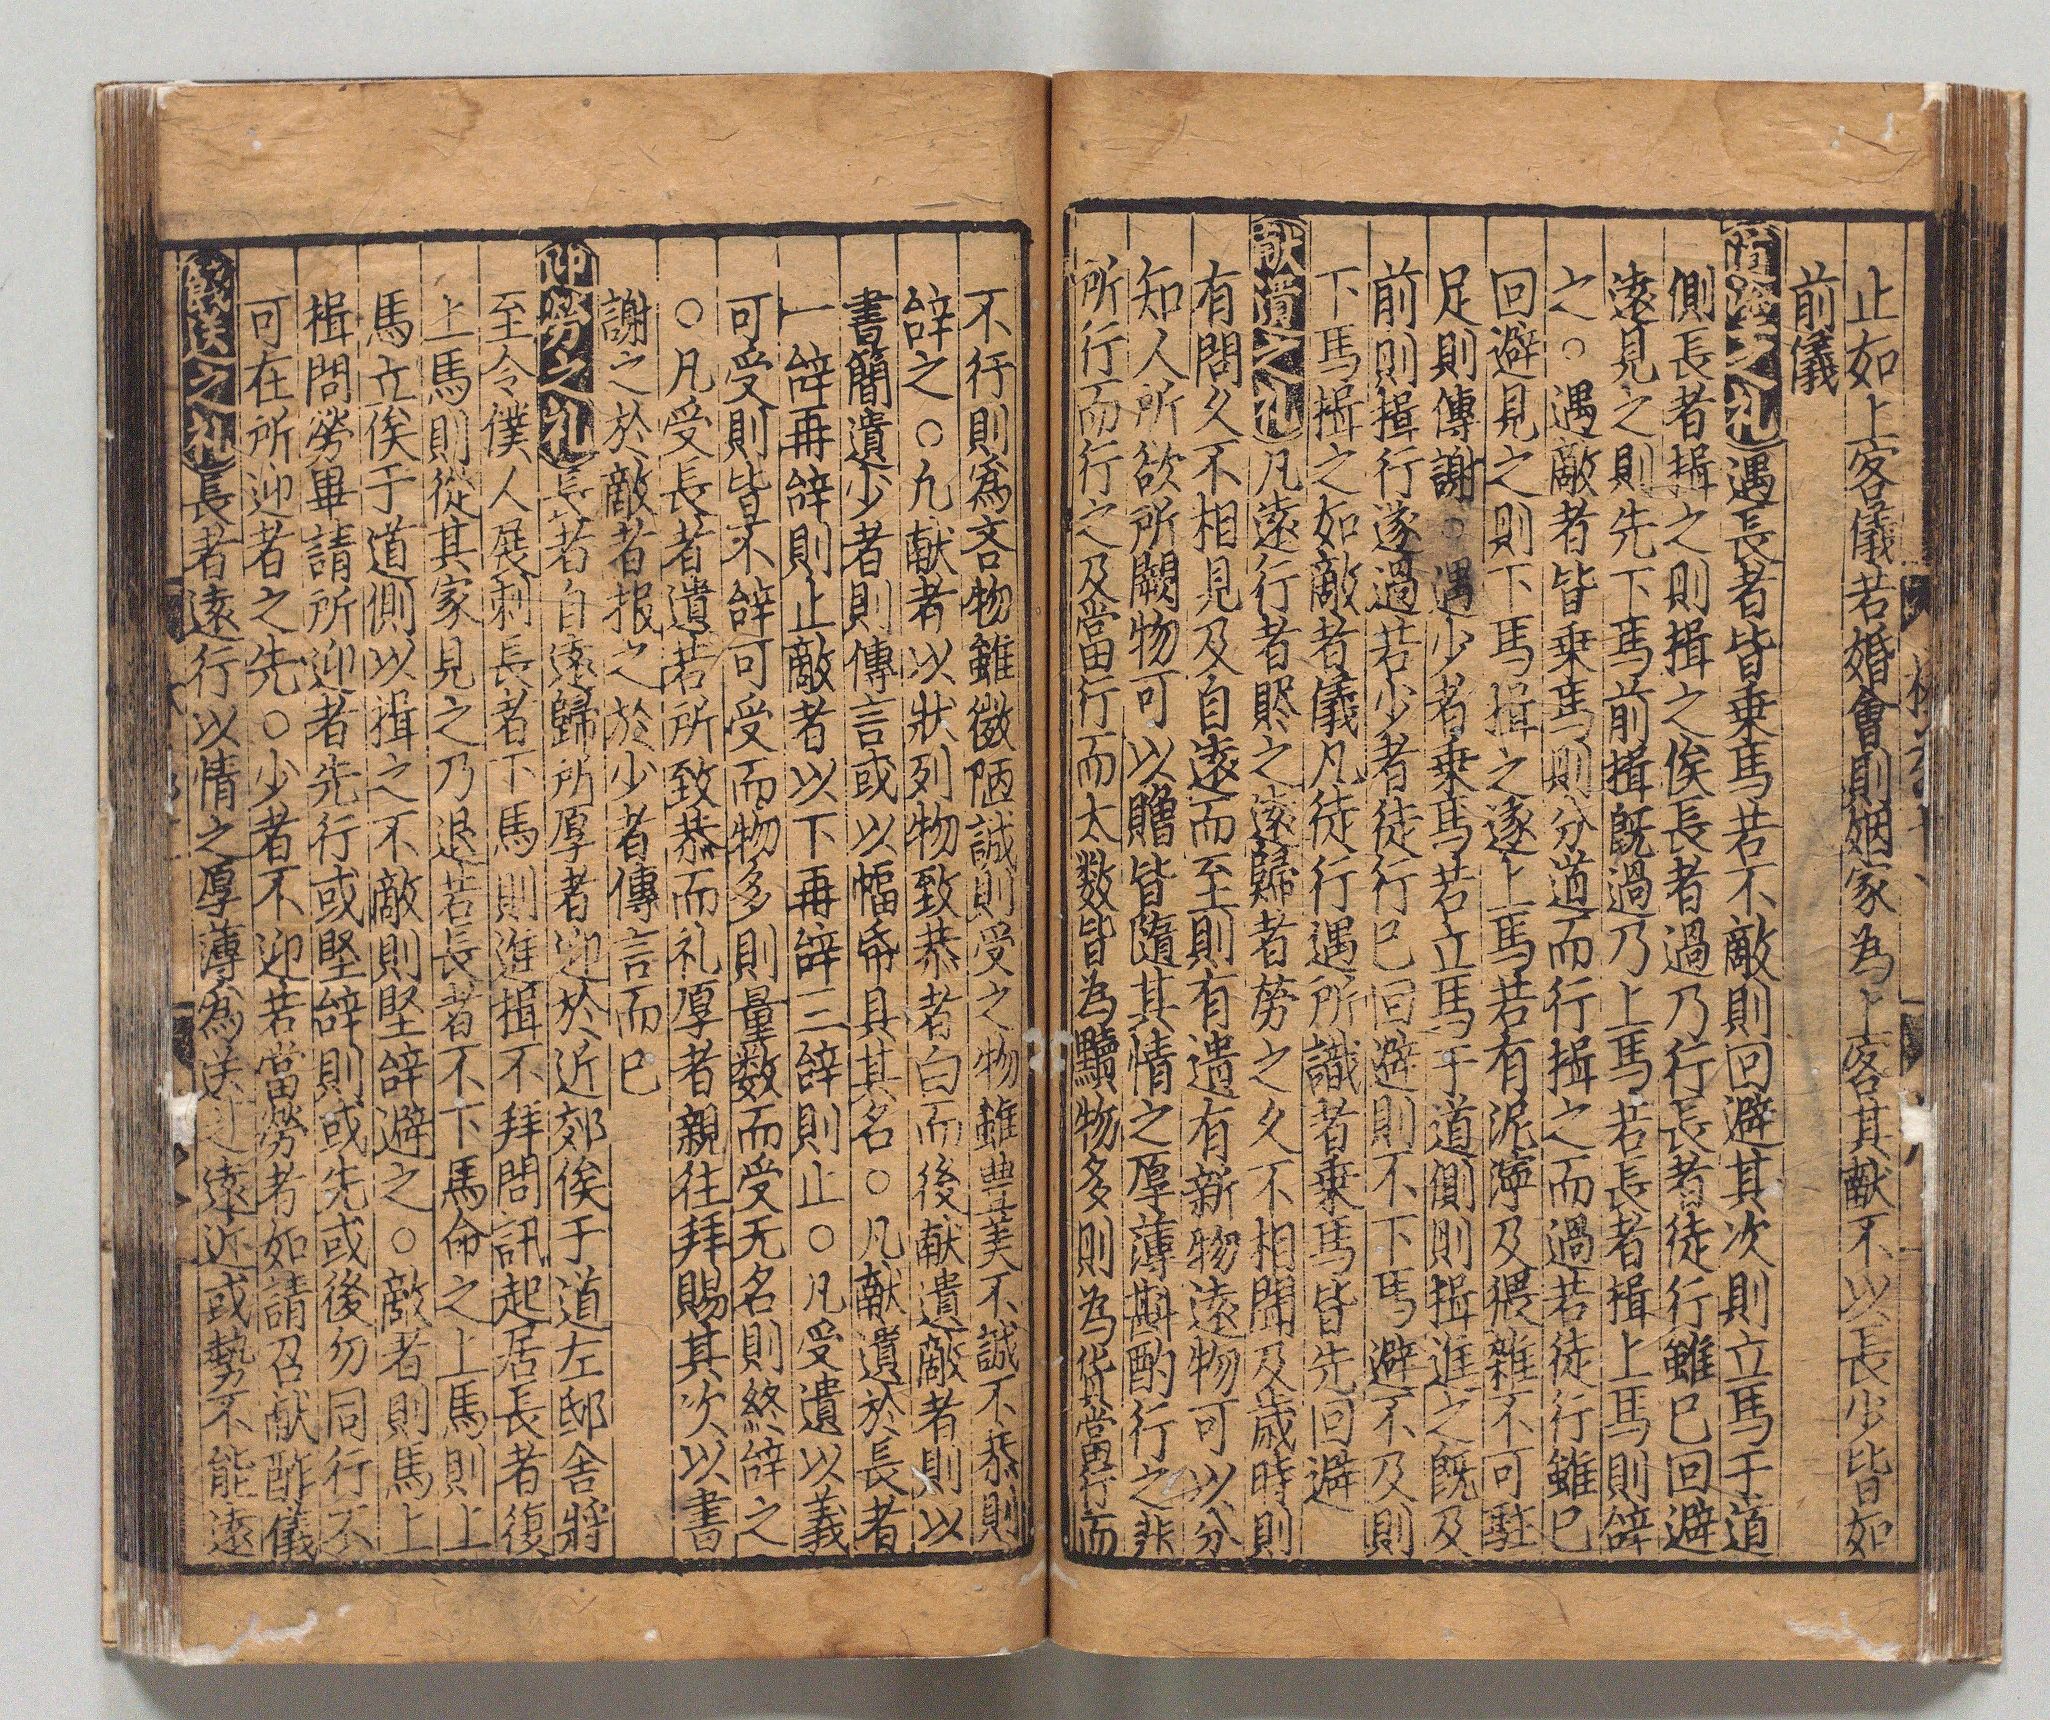 止如上客儀若婚會則姻家為上客其献不以長少皆如
前儀
途之礼遇長者皆乗馬若不敵則回避其次則立馬于道
側長者揖之則揖之俟長者過乃行長者徒行雖已回避
遠見之則先下馬前揖旣過乃上馬若長者揖上馬則辝
之○遇敵者皆乗馬則分道而行揖之而過若徒行雖已
回避見之則下馬揖之遂上馬若有泥濘及猥雜不可駐
足則傳謝○遇少者乗馬若立馬于道側則揖進之旣及
前則揖行遂過若少者徒行已回避則不下馬避不及則
下馬揖之如敵者儀凡徒行遇所識者乗馬皆先回避
献遺之礼凡遠行者賖之遠歸者勞之久不相聞及歳時則
有問久不相見及自遠而至則有遺有新物遠物可以分
知人所欲所闕物可以贈皆隨其情之厚薄斟酌行之非
所行而行之及當行而太数皆為黷物多則為貨當行而
不行則爲吝物雖微陋誠則受之物雖豊美不誠不恭則
辝之○凡献者以狀列物致恭者白而後献遺敵者則以
書簡遺少者則傳言或以幅帋具其名○凡献遺於長者
一辝再辝則止敵者以下再辝三辝則止○凡受遺以義
可受則皆不辝可受而物多則量数而受无名則終辝之
○凡受長者遺若所致恭而礼厚者親往拜賜其次以書
謝之於敵者报之於少者傳言而已
迎勞之礼長者自遠歸所厚者迎於近郊俟于道左邸舎將
至令僕人展刺長者下馬則進揖不拜問訊起居長者復
上馬則從其家見之乃退若長者不下馬命之上馬則上
馬立俟于道側以揖之不敵則堅辝避之○敵者則馬上
揖問勞畢請所迎者先行或堅辝則或先或後勿同行不
可在所迎者之先○少者不迎若當勞者如請召献酢儀
餞送之礼長者遠行以情之厚薄爲送之遠近或勢不能遠